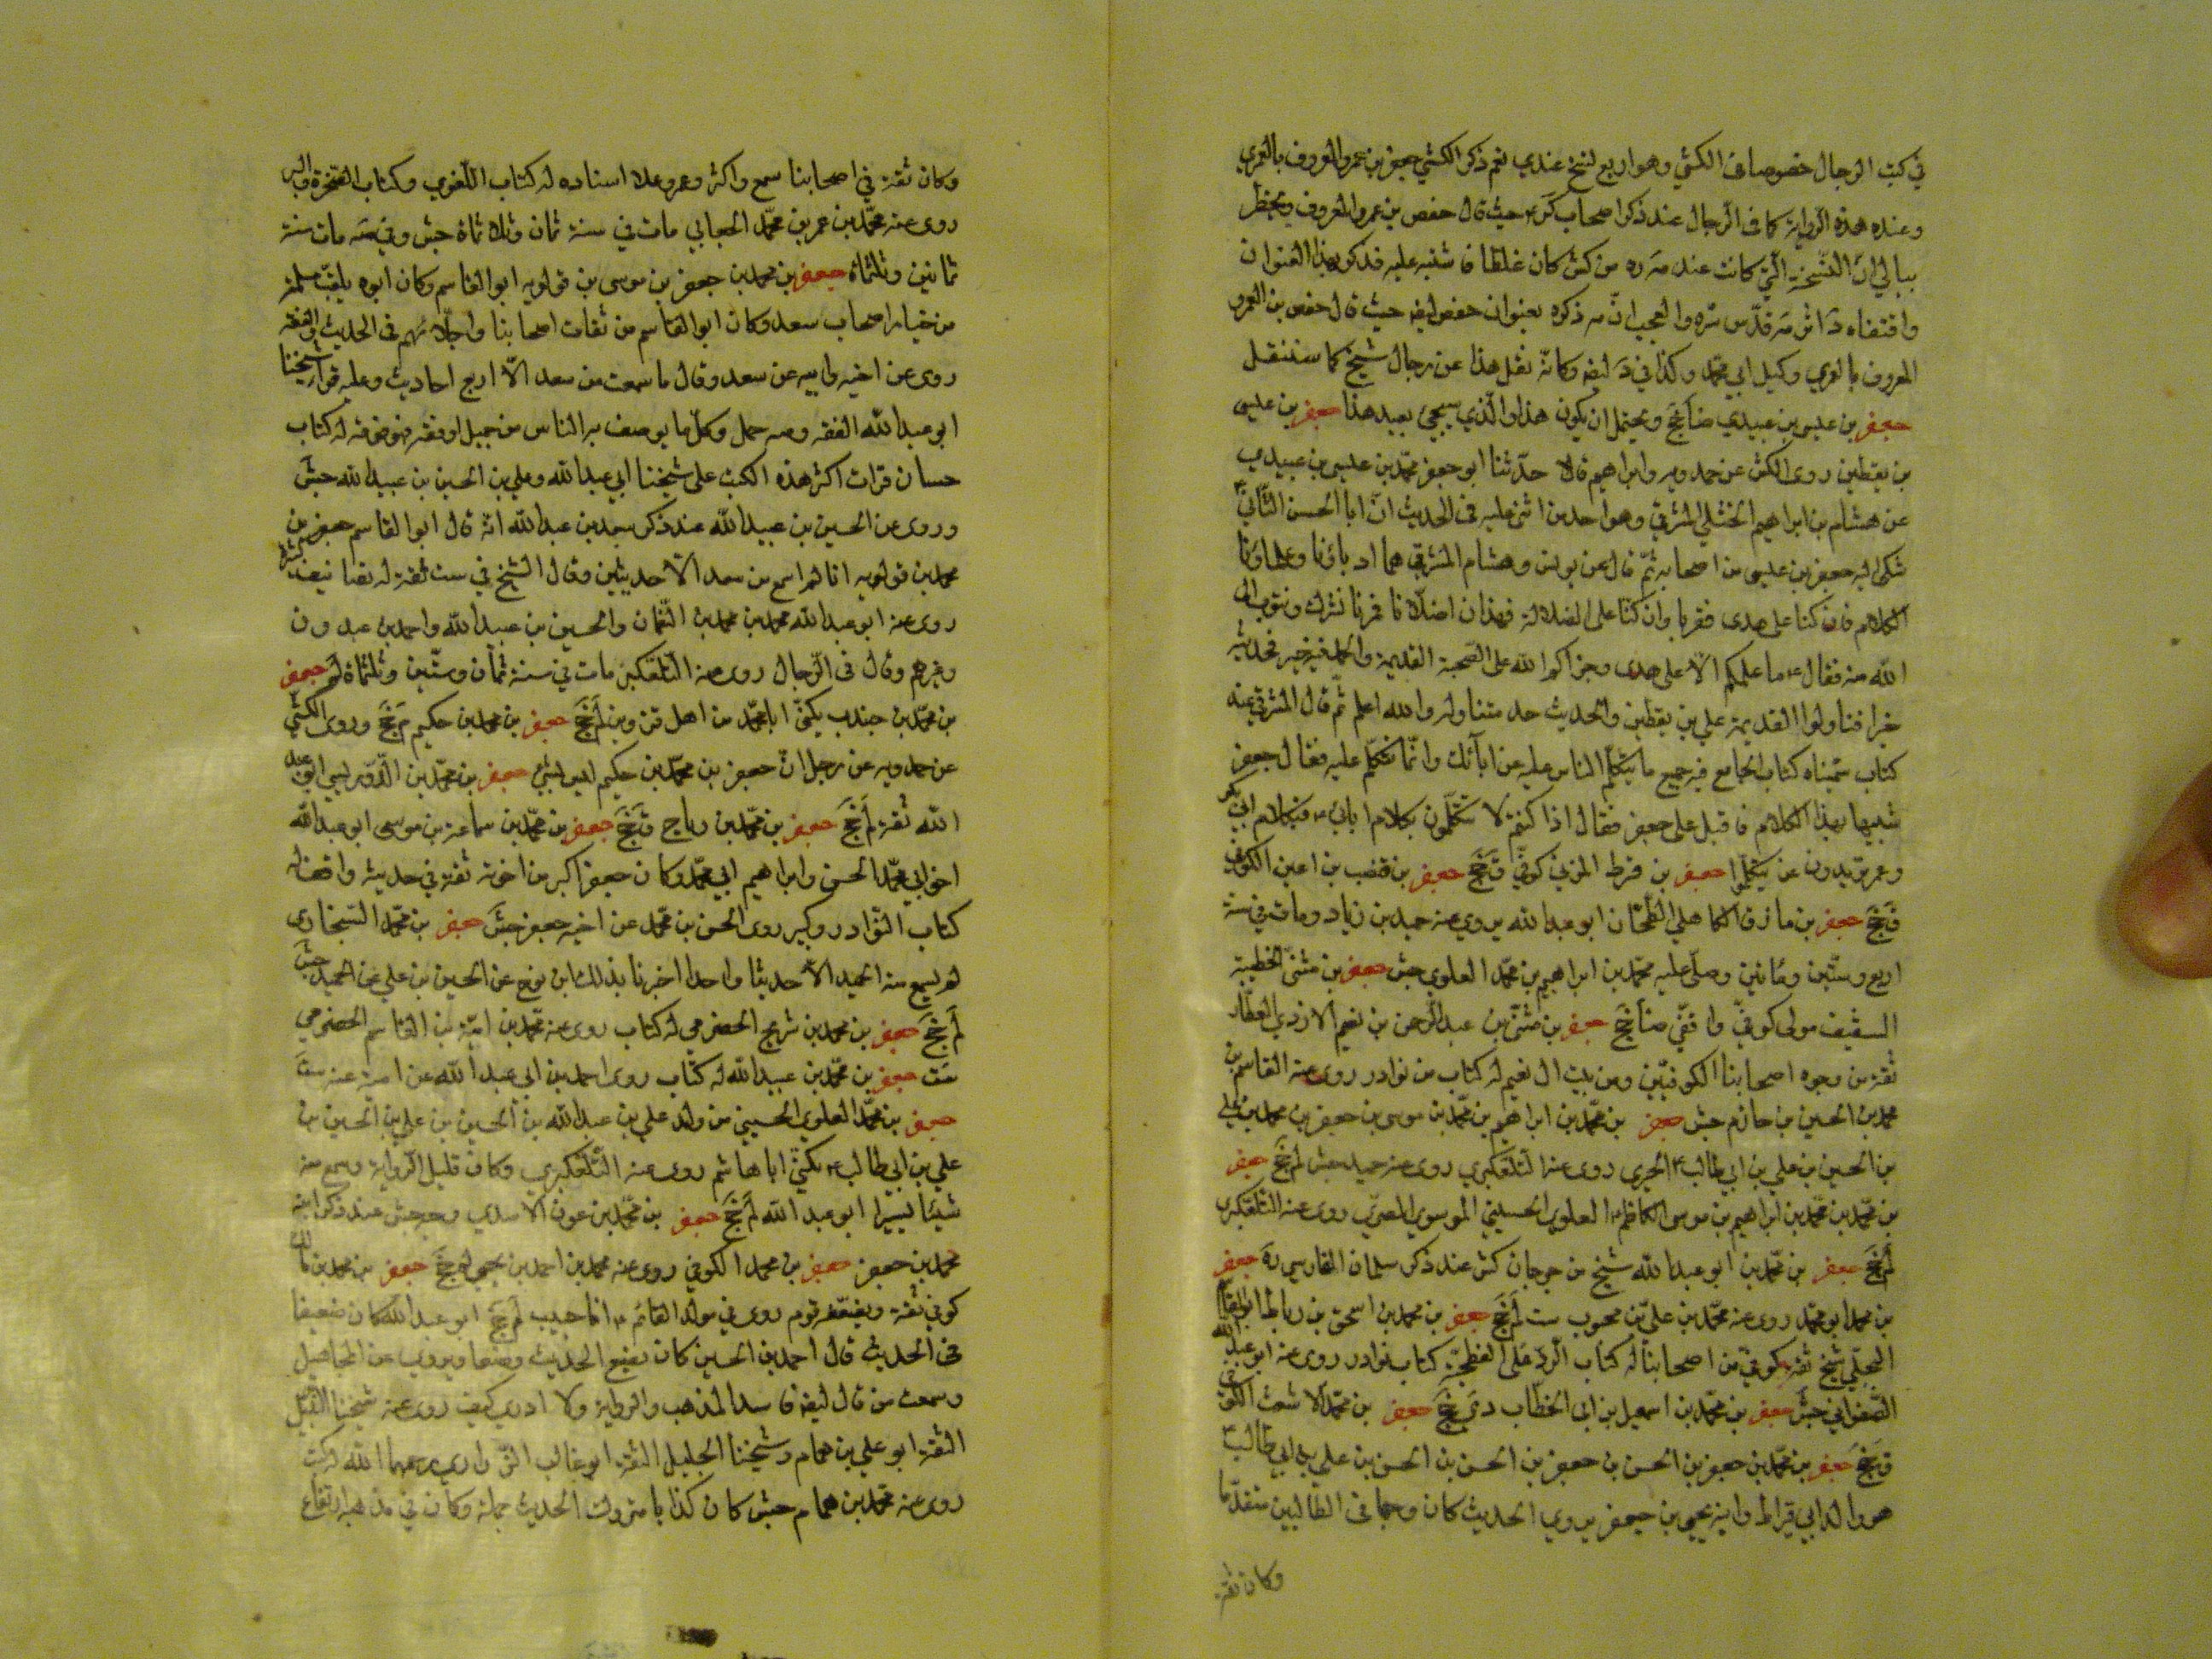 في كتب الرجال خصوصا في الكشي وهو اربع نسخ عندي نعم ذكر الكشي جعفر بن عمرو المعروف بالعمري
وعنده هذه الرواية كما في الرجال عند ذكر اصحاب كر حيث قال حفص بن عمرو المعروف ويخطر
ببالي ان النسخة التي كانت عند مه ره من كش كان غلطا فاشتبه عليه فذكر بهذا العنوان
واقتفاه د اثر مه قدس سره والعجب انه مه ذكره بعنوان حفص ايضا حيث قال حفص بن العمرو
المعروف بالعمري وكيل ابي محمد وكذا في د ايضا وكانه نقل هذا عن رجال شيخ كما سننقل
جعفر بن عيسى بن عبيدي ضا جخ ويحتمل ان يكون هذا والذي سيجئ بعيد هذا جعفر بن عيسى
بن يقطين روى الكش عن حمدويه وابراهيم قالا حدثنا ابو جعفر محمد بن عيسى بن عبيدي
عن هشام بن ابراهيم الختلي المشرقي وهو احد من اثنى عليه في الحديث ان ابا الحسن الثاني
شكى اليه جعفر بن عيسى من اصحابه ثم قال عن يونس وهشام المشرقي هما ادباؤنا وعلماؤنا
الكلام فان كنا على هدى فقربا وان كنا على الضلالة فهذان اضلانا فمرنا نترك ونتوب الى
الله منه فقال ما علمكم الا على هدى وجزاكم الله على الصحبة القديمة والحديثة خيرا
خيرا فتاولوا القديمة علي بن يقطين والحديث حد متنا وله والله اعلم ثم قال المشرقي عنه
كتاب سميناه كتاب الجامع فيه جميع ما يتكلم الناس عليه عن ابائك وانما نتكلم عليه فقال جعفر
شبيها بهذا الكلام فاقبل على جعفر فقال اذا كنتم لا تتكلمون بكلام ابائي فبكلام ابي بكر
وعمر تريدون عن يتكلموا جعفر بن قرط المزني كوفي ق جخ جعفر بن قعنب بن اعين الكوفي
ق جخ جعفر بن مازن الكاهلي الطحان ابو عبد الله يروي عنه حميد بن زياد ومات في سنة
اربع وستين ومائتين وصلى عليه محمد بن ابراهيم بن محمد العلوي جش جعفر بن مثنى الخطيب
السقيف مولى كوفي واقفي ضا جخ جعفر بن مثنى بن عبد الرحمن بن نعيم الازدي العطار
ثقة من وجوه اصحابنا الكوفيين ومن بيت ال نعيم له كتاب من نوادر روى عنه القاسم بن
محمد بن الحسين بن حازم جش جعفر بن محمد بن ابراهيم بن محمد بن موسى بن جعفر بن محمد بن علي
بن الحسين بن علي بن ابي طالب الحيري روى عنه التلعكبري روى عنه حميد جش لم جخ جعفر
بن محمد بن محمد بن ابراهيم بن موسى الكاظم العلوي الحسيني الموسوي المصري روى عنه التلعكبري
لم جخ جعفر بن محمد بن ابو عبد الله شيخ من جرجان كش عند ذكر سلمان الفارسي ره جعفر
بن محمد ابو محمد روى عنه محمد بن علي بن محبوب ست لم جخ جعفر بن محمد بن اسحق بن رباط ابو القاسم
البجلي شيخ ثقة كوفي من اصحابنا له كتاب الرد على الفطحية كتاب نوادر روى عنه ابو عبد الله
الصفواني جش جعفر بن محمد بن اسمعيل بن ابي الخطاب دي جخ جعفر بن محمد الاشعث الكوفي
ق جخ جعفر بن محمد بن جعفر بن الحسن بن جعفر بن الحسن بن الحسن بن علي بن ابي طالب
هو والد ابي قيراط وابنه يحيى بن جعفر يروي الحديث كان وجها في الطالبين متقدما
وكان ثقة
وكان ثقة في اصحابنا سمع واكثر وعمر وعلا اسناده له كتاب اللغوي وكتاب الصخرة والبير
روى عنه محمد بن عمر بن محمد الجعابي مات في سنة ثمان وثلاثمائة جش وفي صه مات سنة
ثمانين وثلثمائة جعفر بن محمد بن جعفر بن موسى بن قولويه ابو القاسم وكان ابوه يلقب مسلمة
من خيار اصحاب سعد وكان ابو القاسم من ثقات اصحابنا واجلائهم في الحديث والفقه
روى عن اخيه وابيه عن سعد وقال ما سمعت من سعد الا اربع احاديث وعليه قرا شيخنا
ابو عبد الله الفقه ومنه حمل وكل ما يوصف به الناس من جميل او فقه فهو فوقه له كتاب
حسان قرات اكثر هذه الكتب على شيخنا ابي عبد الله وعلي بن الحسين بن عبيد الله جش
وروى عن الحسين بن عبيد الله عند ذكر سعد بن عبد الله انه قال ابو القاسم جعفر بن
محمد بن قولويه انا لم اسمع من سعد الا حديثين وقال الشيخ في ست ثقة له تصانيف كثيرة
روى عنه ابو عبد الله محمد بن محمد بن النعمان والحسين بن عبيد الله واحمد بن عبدون
وغيرهم وقال في الرجال روى عنه التلعكبري مات في سنة ثمان وستين وثلثمائة لم جعفر
بن محمد بن جندب يكنى ابا محمد من اهل قزوين لم جخ جعفر بن محمد بن حكيم م جخ وروى الكشي
عن حمدويه عن رجل ان جعفر بن محمد بن حكيم ليس بشئ جعفر بن محمد بن الدوريستي ابو عبد
الله ثقة لم جخ جعفر بن محمد بن رباح ق جخ جعفر بن محمد بن سماعة بن موسى ابو عبد الله
اخو ابي محمد الحسن وابراهيم ابي محمد وكان جعفر اكبر من اخوته ثقة في حديثه واقف له
كتاب النوادر وكبير روى الحسن بن محمد عن اخيه جعفر جش جعفر بن محمد السنجاري
لم يسمع منه الحميد الا حديثا واحدا اخبرنا بذلك ابن نوح عن الحسين بن علي عن الحميد جش
لم جخ جعفر بن محمد بن شريح الحضرمي له كتاب روى عنه محمد بن امية بن القاسم الحضرمي
ست جعفر بن محمد بن عبيد الله له كتاب روى احمد بن ابي عبد الله عن ابيه عنه ست
جعفر بن محمد العلوي الحسيني من ولد علي بن عبد الله بن الحسين بن علي بن الحسين بن
علي بن ابي طالب يكنى ابا هاشم روى عنه التلعكبري وكان قليل الرواية وسمع منه
شيئا يسيرا ابو عبد الله لم جخ جعفر بن محمد بن عون الاسدي وجه جش عند ذكر ابنه
محمد بن جعفر جعفر بن محمد الكوفي روى عنه محمد بن احمد بن يحيى لم جخ جعفر بن محمد بن مالك
كوفي ثقة ويضعفه قوم روى في مولد القائم اعاجيب لم جخ ابو عبد الله كان ضعيفا
في الحديث قال احمد بن الحسين كان يضع الحديث وضعا ويروي عن المجاهيل
وسمعت من قال ايضا فاسد المذهب والرواية ولا ادري كيف روى عنه شيخنا النبيل
الثقة ابو علي بن همام وشيخنا الجليل الثقة ابو غالب الزراري رحمهما الله له كتب
روى عنه محمد بن همام جش كان كذابا متروك الحديث جملة وكان في مذهبه ارتفاع